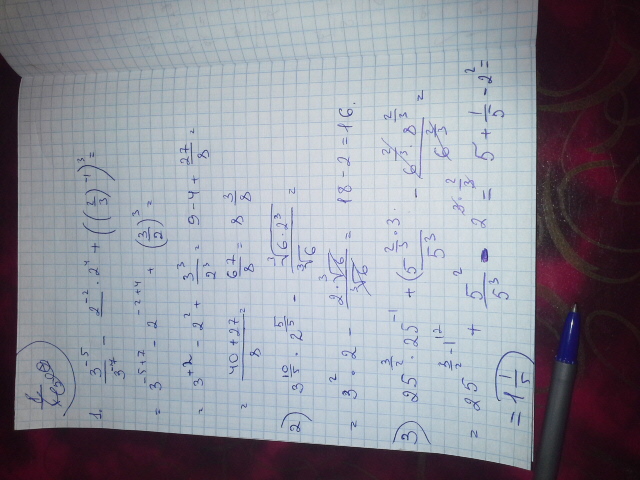 1. 3^-5 / 3^-7 - 2^-2 · 2^4 + ((2/3)^-1)^3 =
= 3^-5+7 - 2^-2+4 + (3/2)^3 =
= 3^+2 - 2^2 + 3^3/2^3 = 9 - 4 + 27/8 =
= (40+27)/8 = 67/8 = 8 3/8
2) 3^10/5 · 2^5/5 - ∛(6·2^3) / ∛6 =
= 3^2 · 2 - 2·∛6 / ∛6 = 18 - 2 = 16.
3) 25^3/2 · 25^-1 + (5^2/3 · 3 / 5^3 - 6^2/3 · 8^2/3 / 6^2/3 =
= 25^3/2 + 1 + 5^2 / 5^3 - 2 = 5 + 1/5 - 2^2 =
= 1 1/5